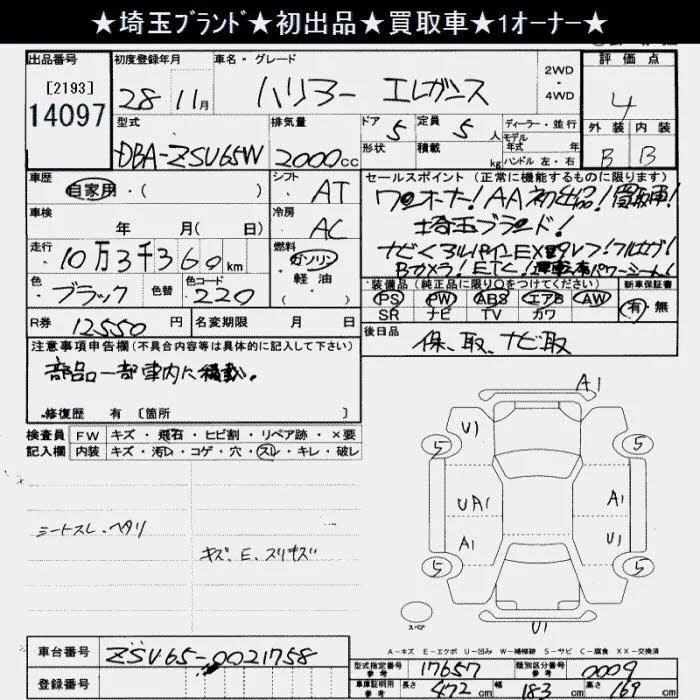 ★埼玉ブランド★初出品★買取車★1オーナー★
出品番号 初度登録年月 車名・グレード 2WD・4WD 評価点
[2193]
14097
28 11月 ハリアー エレガンス 4
型式 排気量 ドア 5 定員 5人 ディーラー・並行 外装 内装
モデル年式 年式
DBA-ZSU65W 2000cc 形状 積載 kg ハンドル 左・右 B B
車歴 自家用・( ) シフト AT
セールスポイント(正常に機能するものに限ります)
ワンオーナー!AA初出品!買取車!
埼玉ブランド!
車検 年 月( 日) 冷房 AC
走行 10万3千360km 燃料 ガソリン 軽油 ( )
Bカメラ!ETC!
色 ブラック 色替 色コード 220
装備品(純正品に限り○をつけてください) 新車保証書
PS PW ABS エアB AW 有・無
SR ナビ TV カワ
R券 12550円 名変期限 月 日
後日品 保、取、ナビ取
注意事項申告欄(不具合内容等は具体的に記入して下さい)
部品一部車内に積載。
修復歴 有 [箇所 ]
検査員記入欄 FW キズ・飛石・ヒビ割・リペア跡・×要
内装 キズ・汚レ・コゲ・穴・スレ・キレ・破レ
シートスレ、ヘタリ
キズ、E、スリキズ
A1
U1
5 5
UA1 A1
A1 U1
5 5
スペア
U1
A-キズ E-エクボ U-凹み W-補修跡 S-サビ C-腐食 XX-交換済
車台番号 ZSU65-0021758
型式指定番号 参考 17657 類別区分番号 参考 0009
登録番号
車庫証明用 参考 長さ 472cm 幅 183cm 高さ 169cm